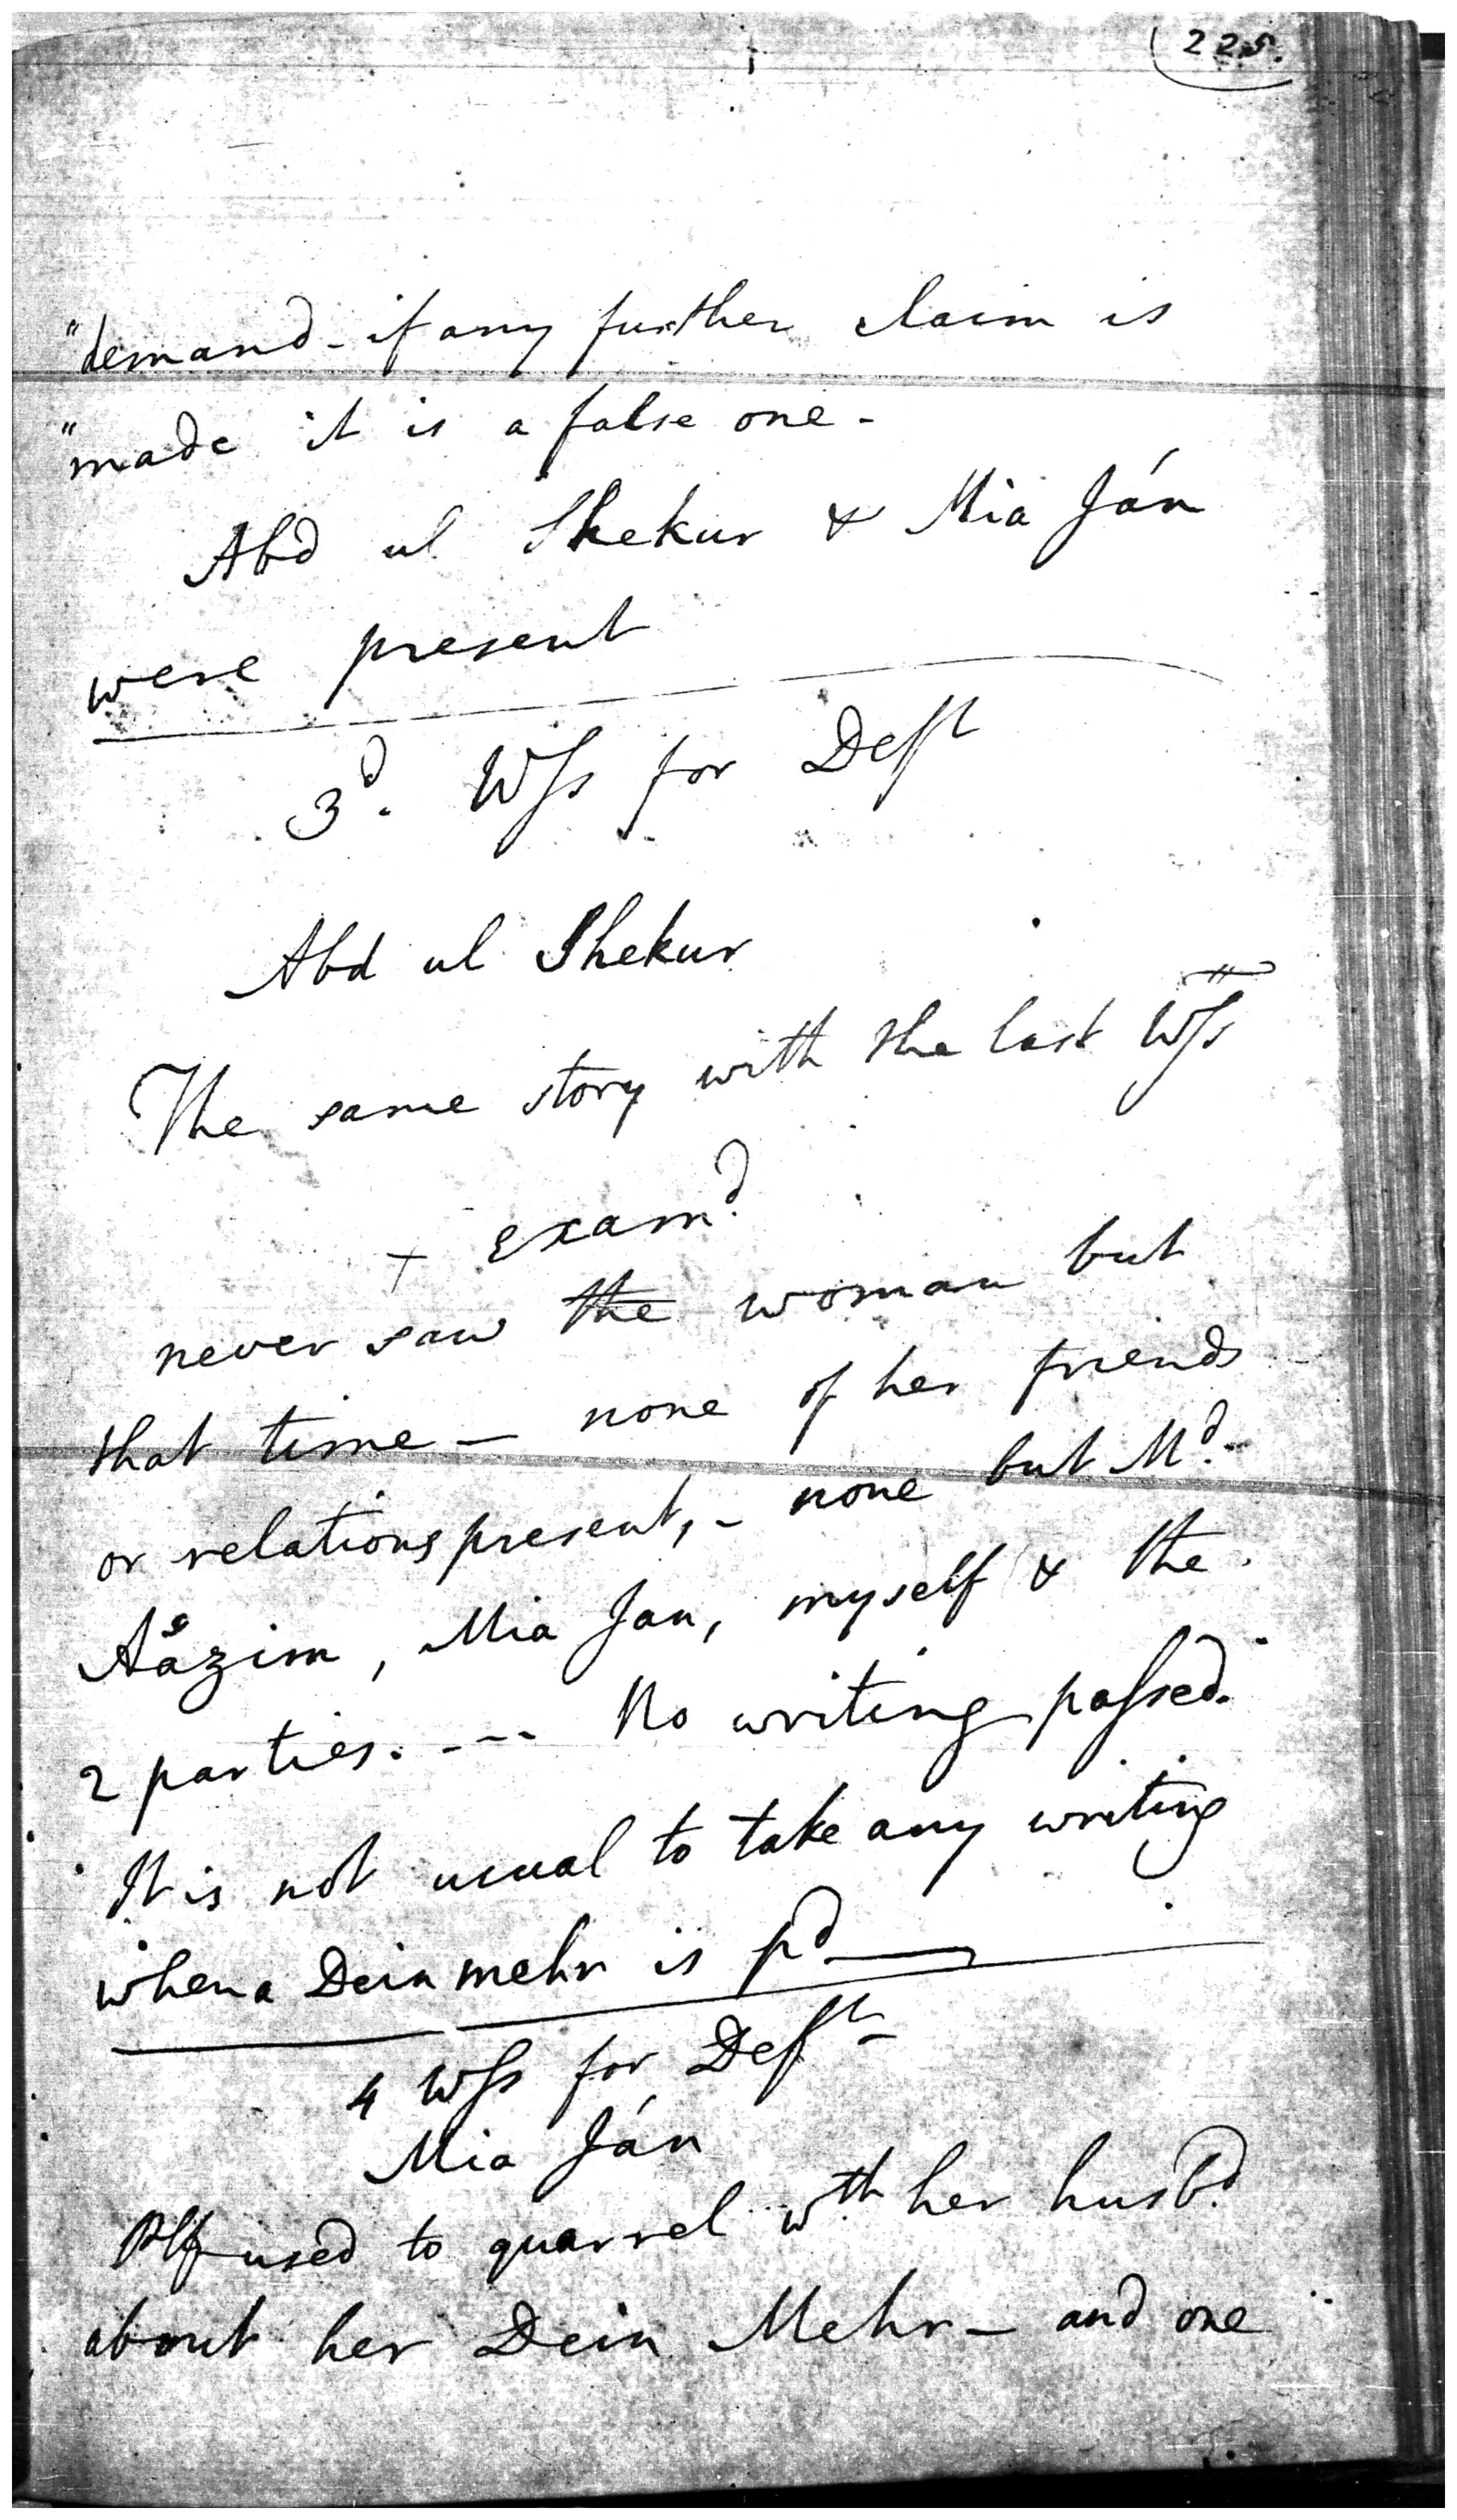 225.
"demand - if any further claim is
"made it is a false one -
Abd ul Shekur & Mia Ján
were present
3d. Wss for Deft
Abd ul Shekur
The same story with the last Wss
+ examd.
never saw the woman but
that time — none of her friends
or relations present, - none but Md.
Aázim, Mia Jan, myself & the
2 parties. --- No writing passed.
It is not usual to take any writing
when a Dein mehr is pd
4 Wss for Deft
Mia Ján
Plf used to quarrel wth. her husbd.
about her Dein Mehr — and one